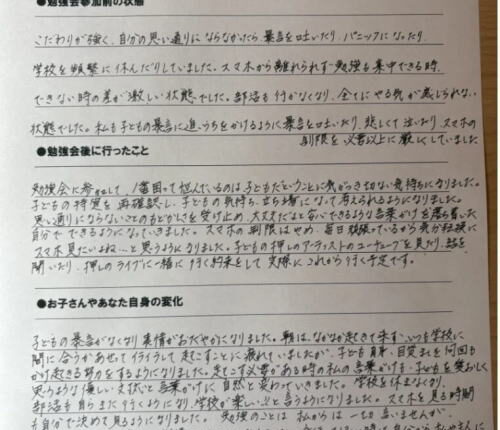 ●勉強会参加前の状態
こだわりが強く、自分の思い通りにならなかったら暴言を吐いたり、パニックになったり、
学校を頻繁に休んだりしていました。スマホから離れられず勉強も集中できる時、
できない時の差が激しい状態でした。部活も行かなくなり、全てにやる気が感じられない
状態でした。私も子どもの暴言に追いうちをかけるように暴言を吐いたり、悲しくて泣いたり、スマホの
制限を必要以上に厳しくしていました
●勉強会後に行ったこと
勉強会に参加して、1番困って悩んでいるのは子どもだということに気がつき切ない気持ちになりました。
子どもの特質を再確認し、子どもの気持ち、立ち場になって考えられるようになりました。
思い通りにならないことのもどかしさを受け止め、大丈夫だよと安心できるような言葉かけを落ち着いた
自分でできるようになっていきました。スマホの制限はやめ、毎日頑張っているから気分転換に
スマホ見たいよね…と思うようになりました。子どもの押しのアーティストのユーチューブを見たり、話を
聞いたり、押しのライブに一緒に行く約束をして実際にこれから行く予定です。
●お子さんやあなた自身の変化
子どもの暴言がなくなり表情がおだやかになりました。朝は、なかなか起きて来ず、いつも学校に
間に合うかあせってイライラして起こすことに疲れていましたが、子ども自身、目覚ましを何回も
かけ起きる努力をするようになりました。起こす必要がある時の私の言葉がけも、子どもを愛おしく
思うような優しい文状と言葉がけに自然と変わっていきました。学校を休まなくなり、
部活も自らまた行くようになり、学校が楽しいと言うようになりました。スマホを見る時間
も自分で決めて見るようになりました。勉強のことは私からは一切言いませんが、